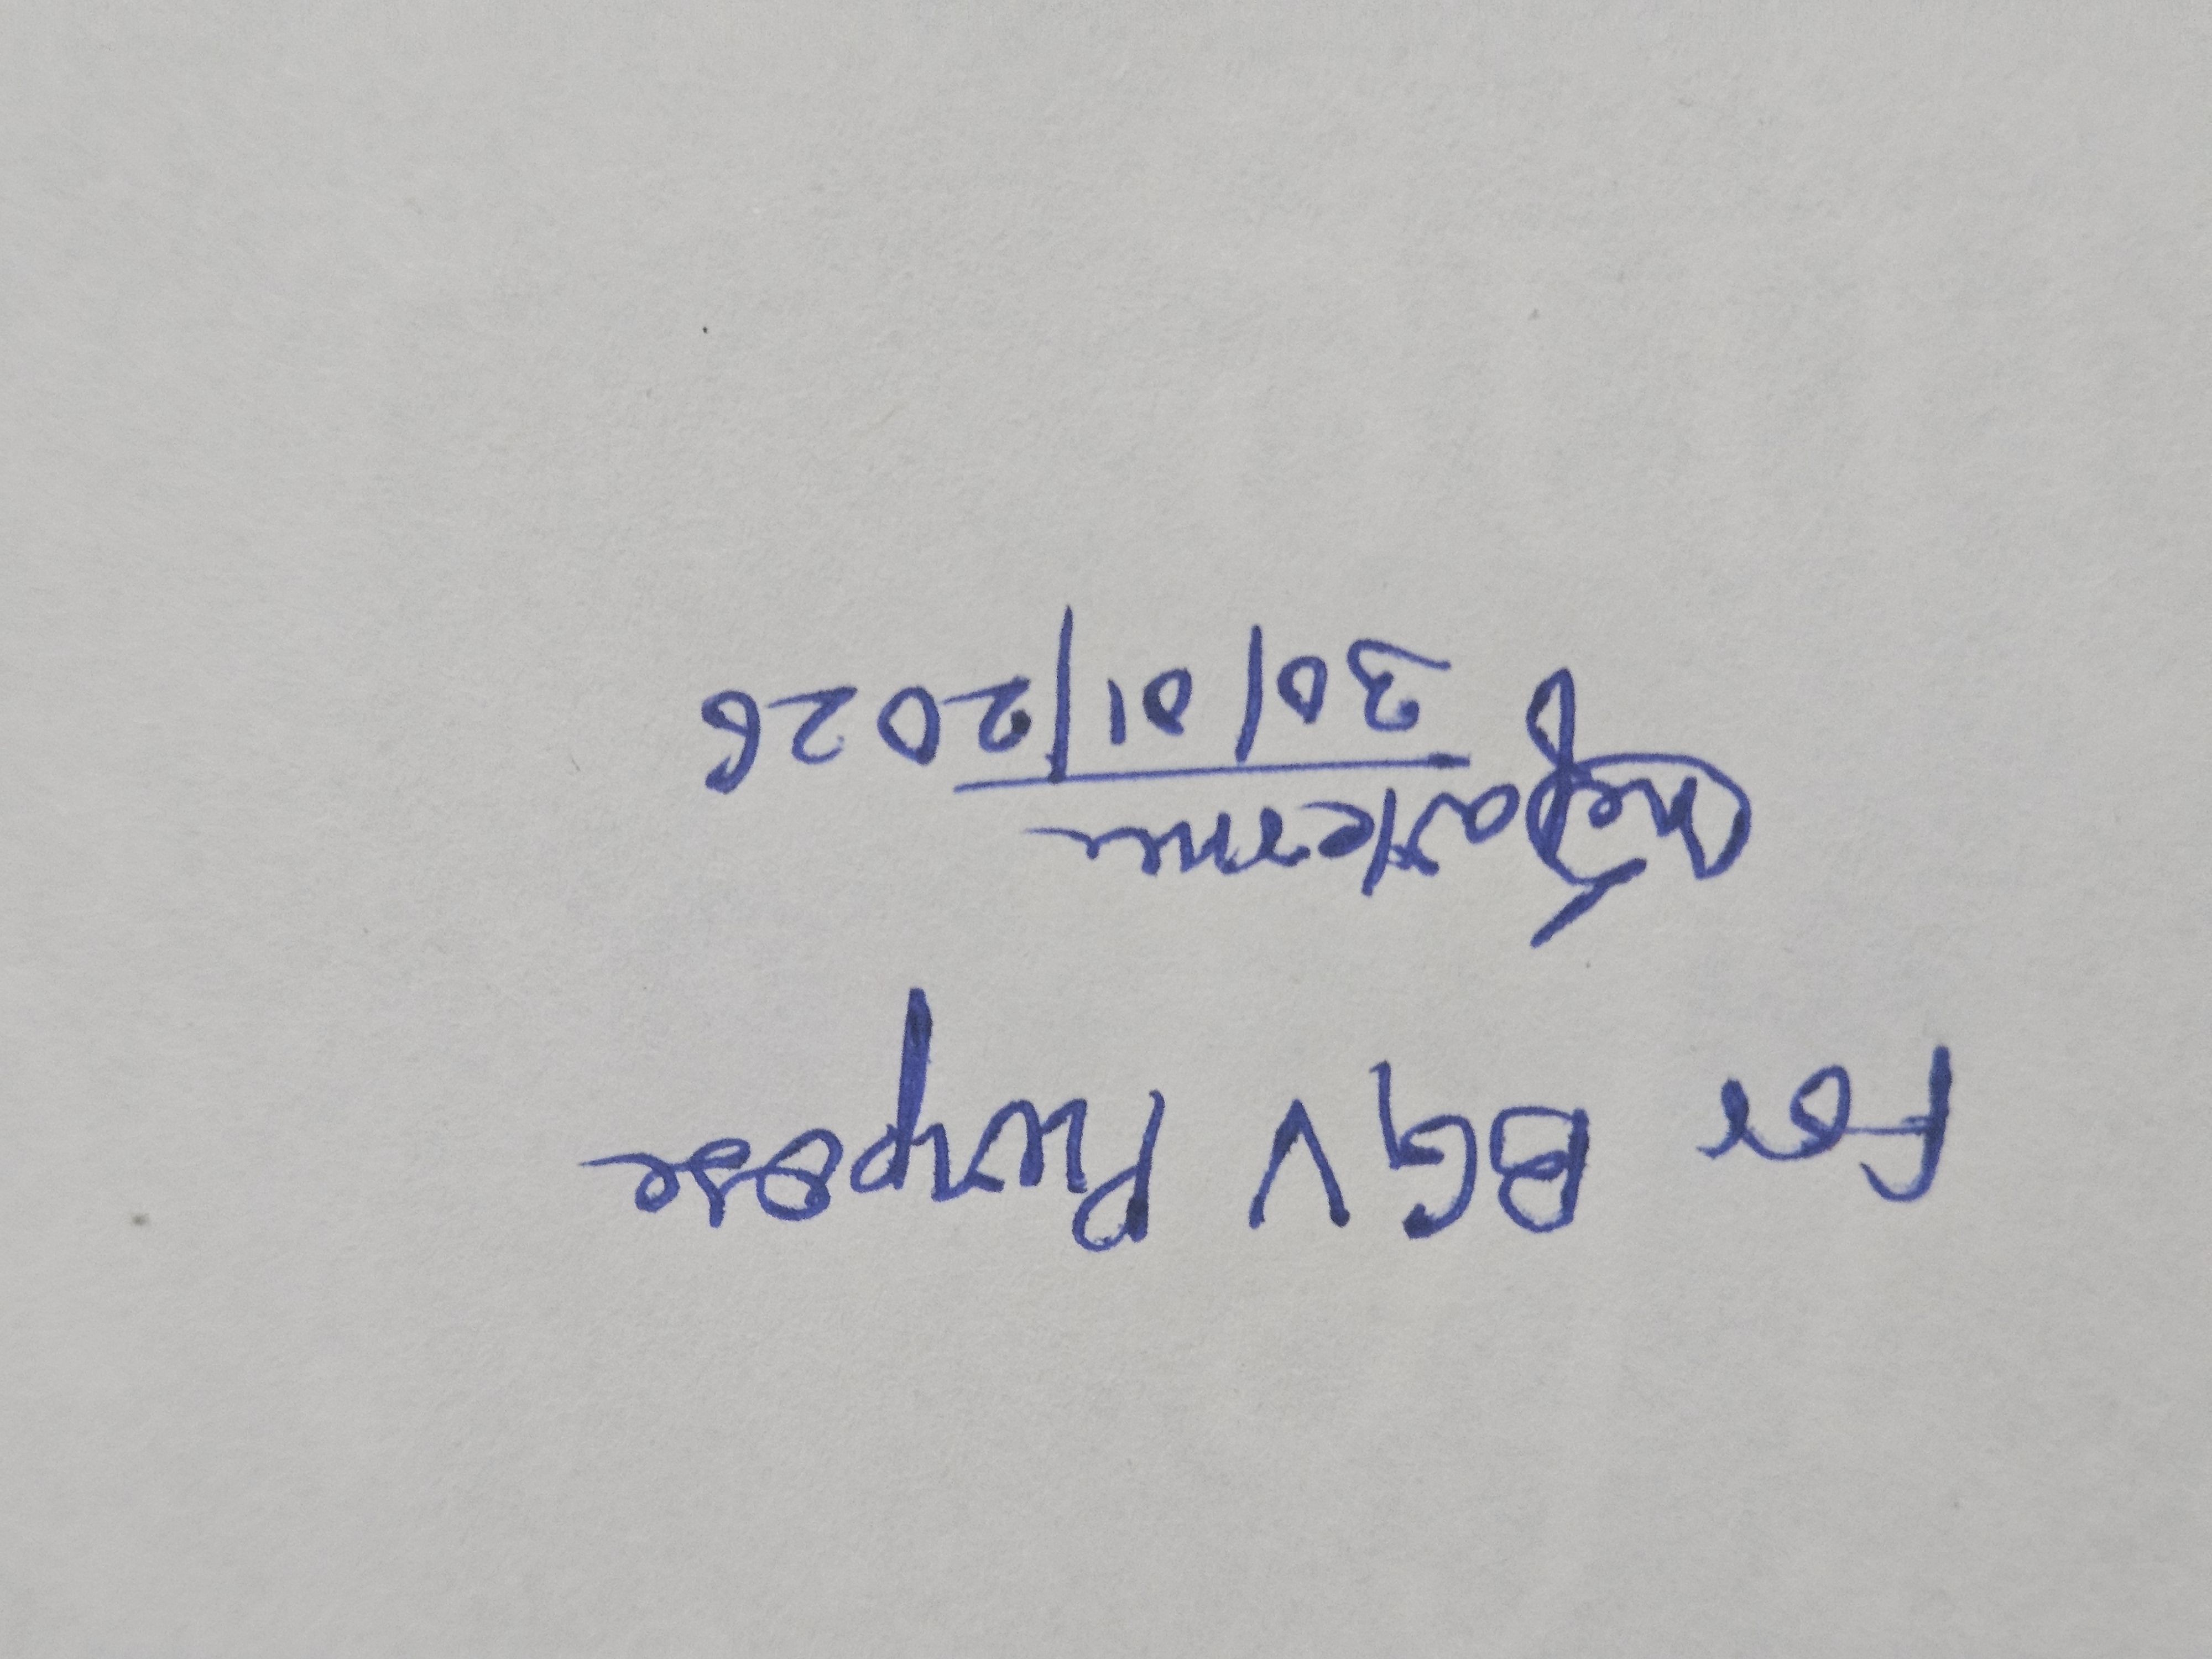 For BGV Purpose
30/01/2026